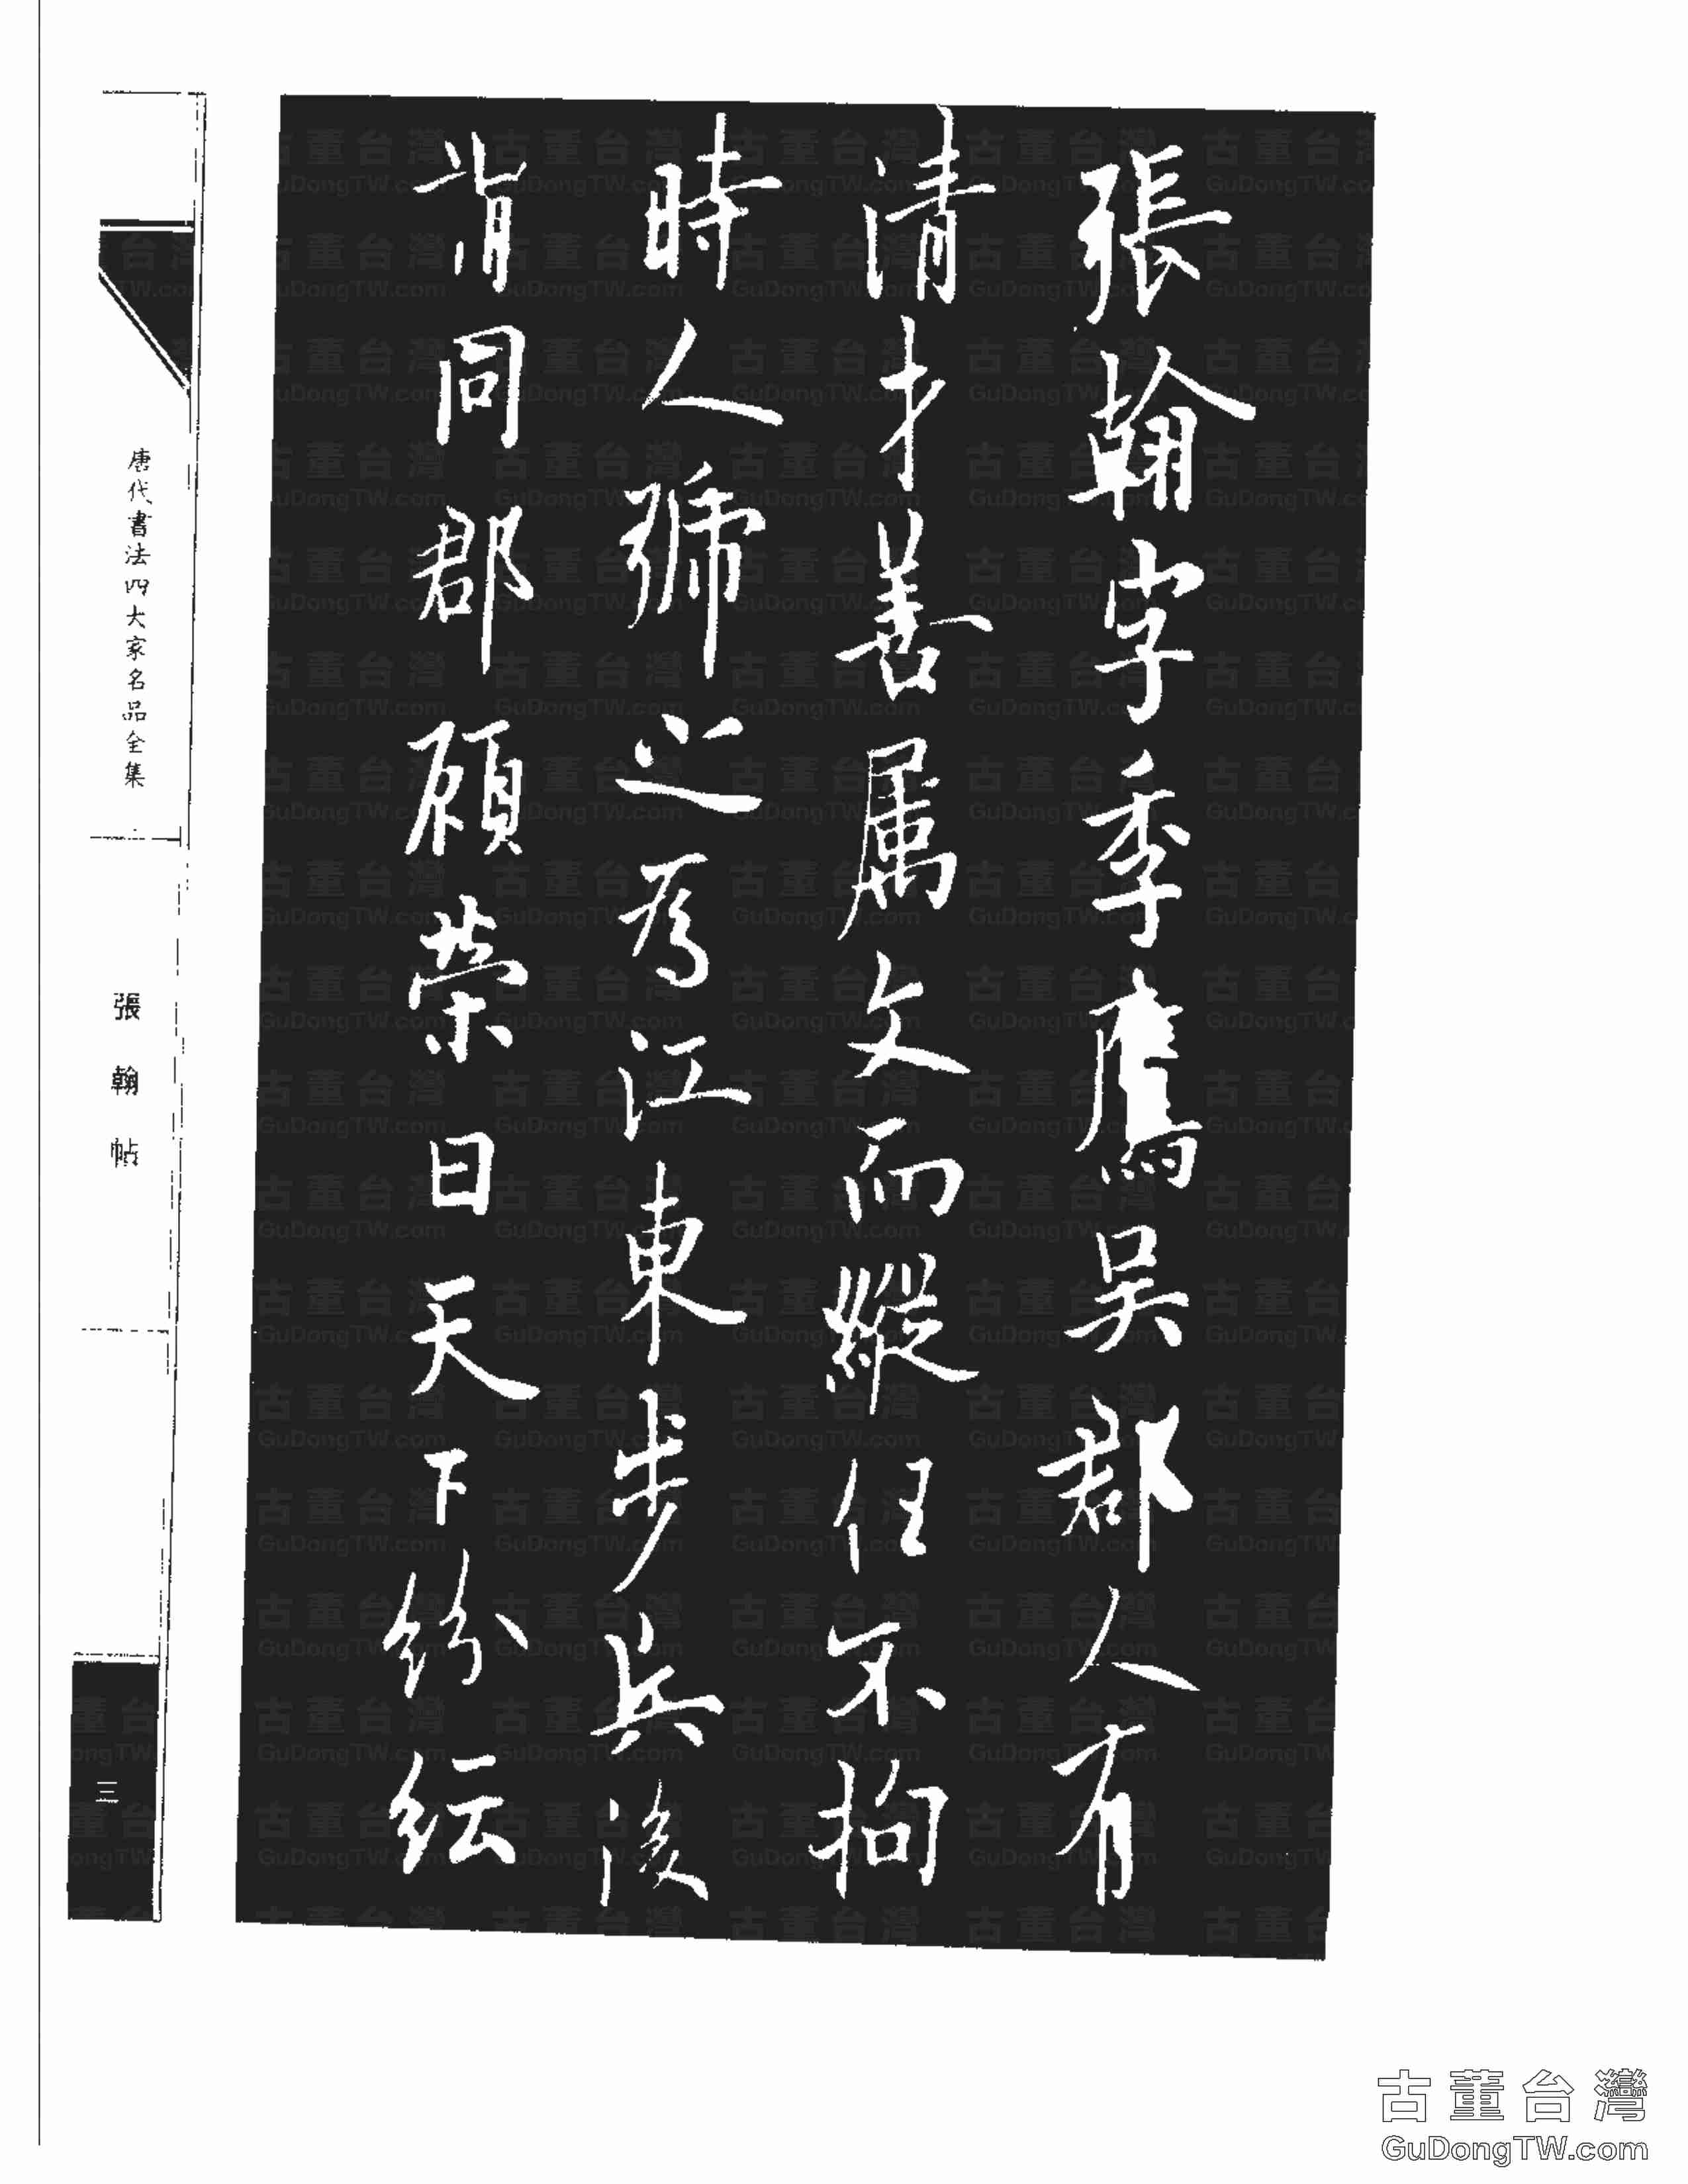 張翰字季鷹吳郡人有
清才善属文而縱任不拘
時人號之為江東步兵後
謂同郡顧榮曰天下紛紜
唐代書法四大家名品全集
張翰帖
三
古董台灣
GuDongTW.com